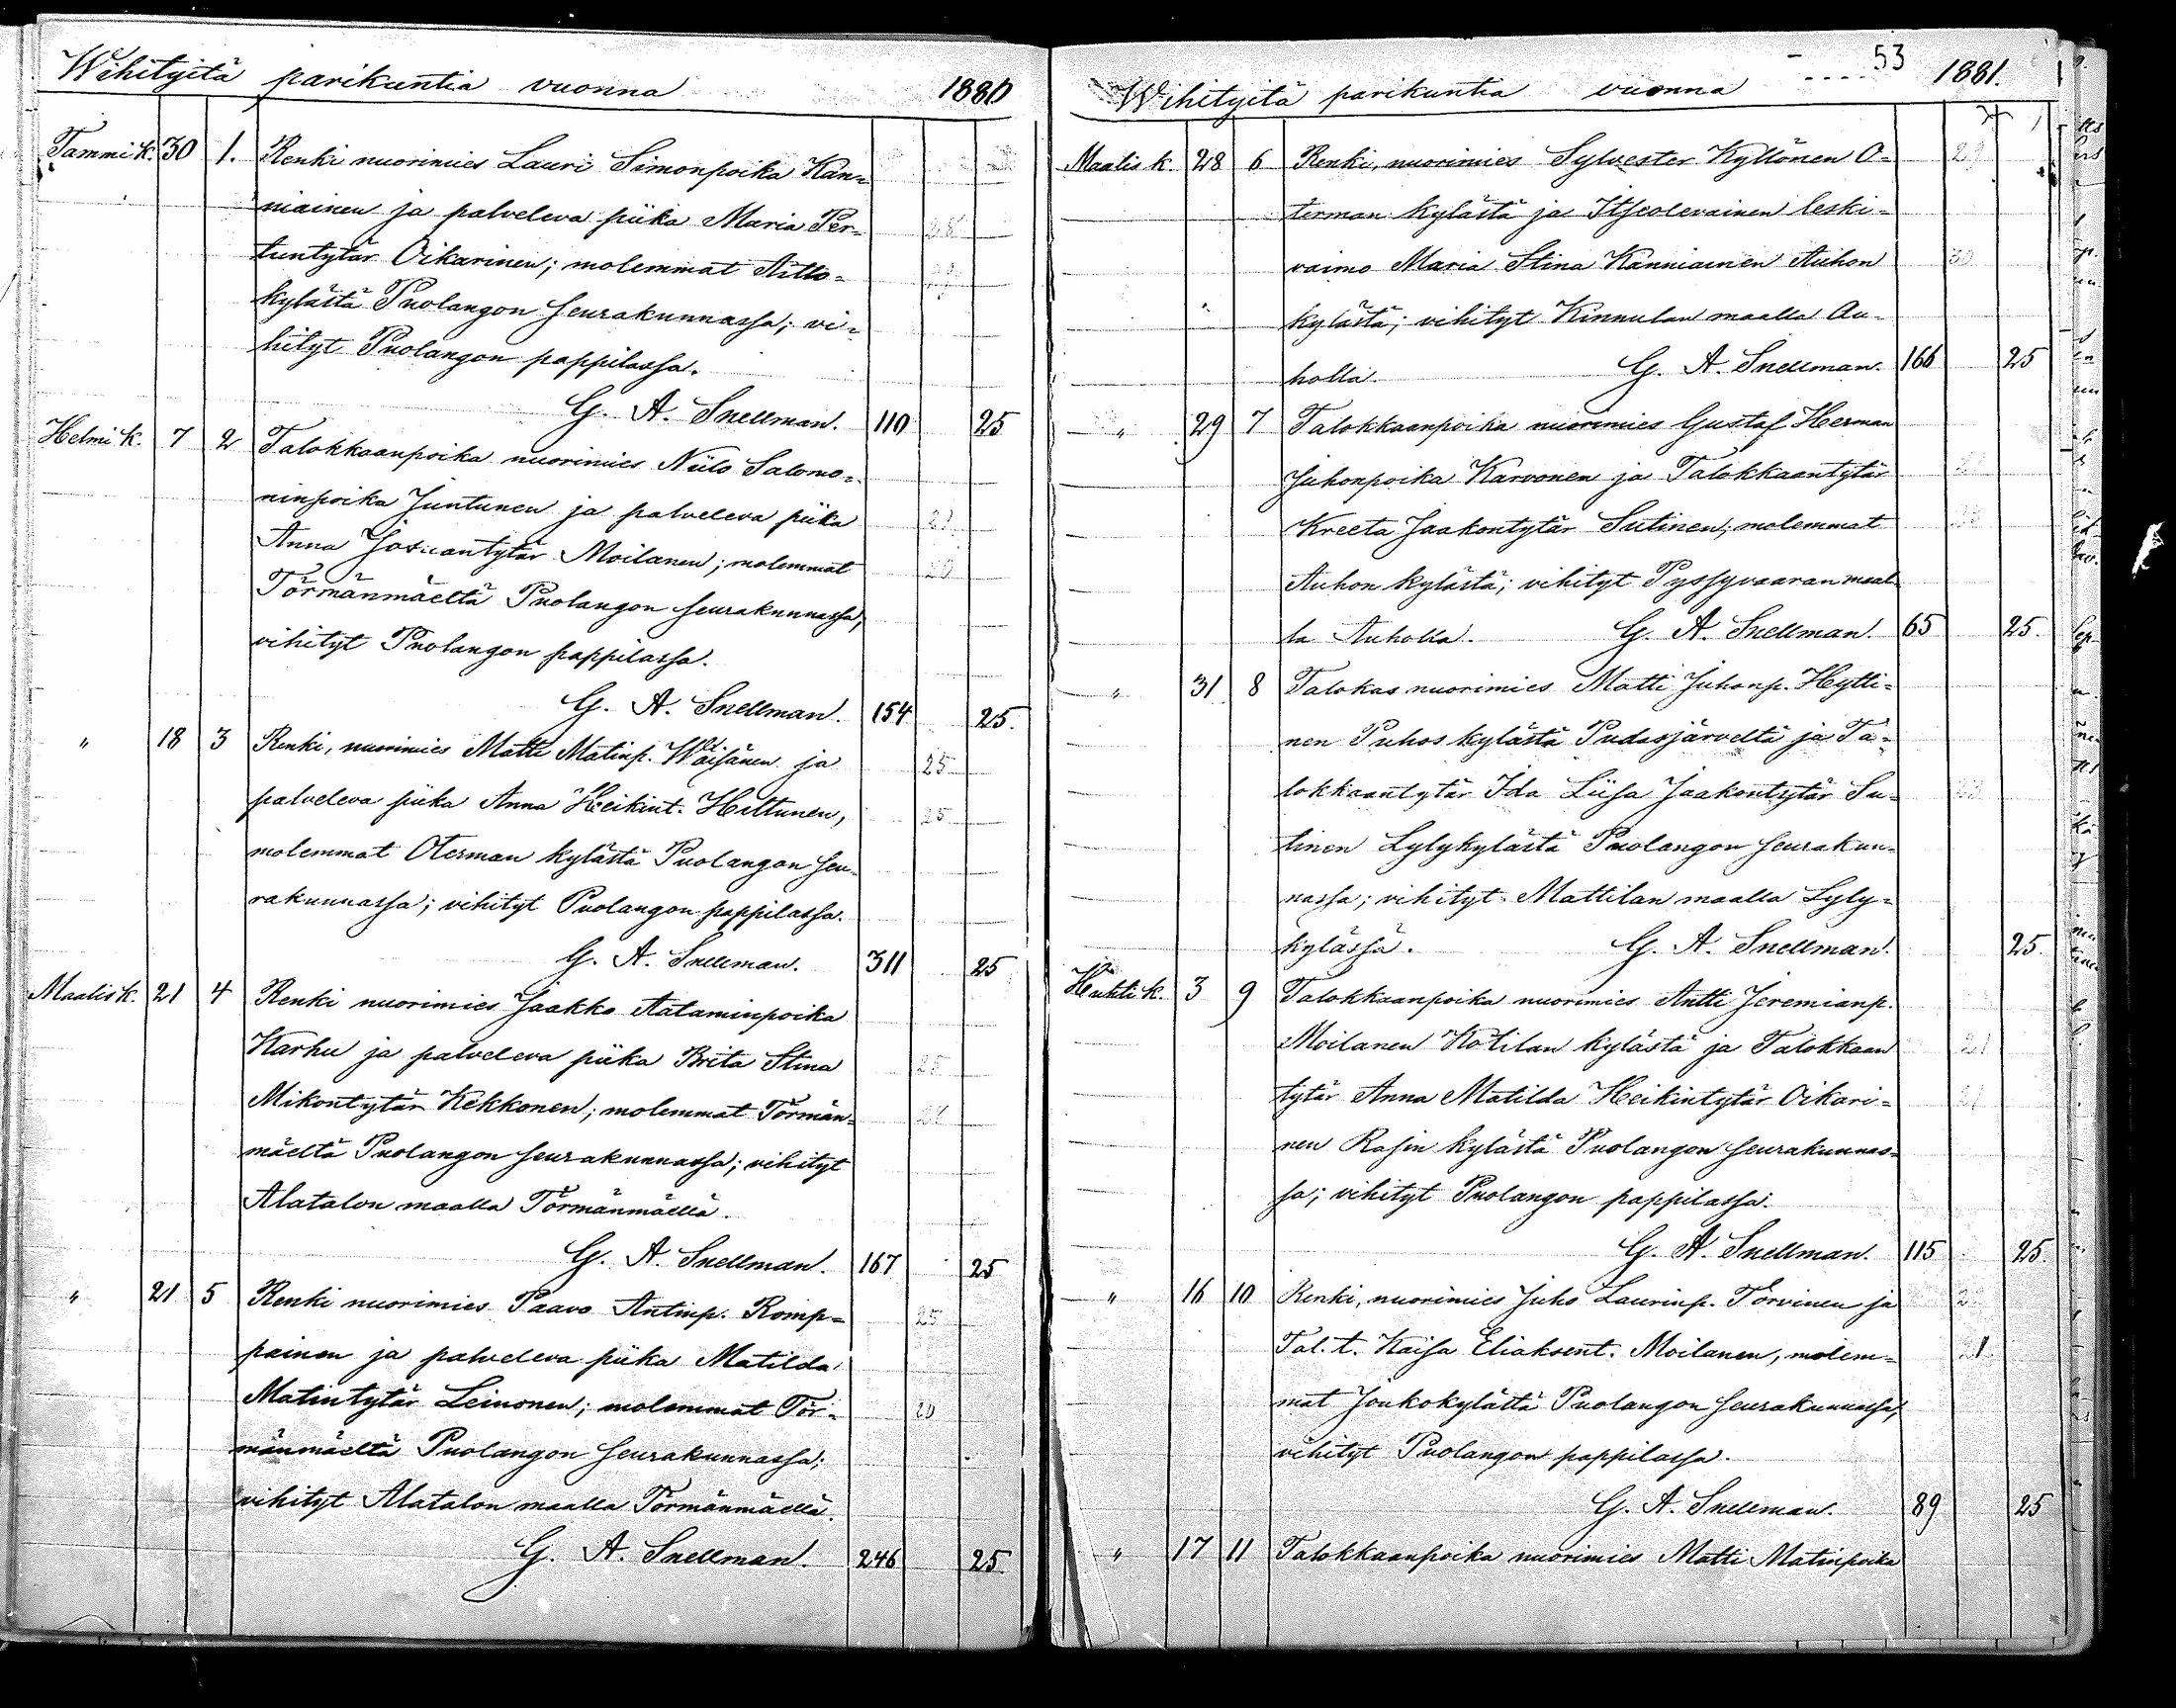 Wihityitä parikuntia vuonna 1880
Tammi k. 30 1. Renki nuorimies Lauri Simonpoika Kan=
niainen ja palveleva piika Maria Per=
tuntytär Oikarinen; molemmat Aitto=
kylästä Puolangon seurakunnassa; vi=
hityt Puolangon pappilassa.
G. A. Snellman. 110 25
Helmi k. 7 2 Talokkaanpoika nuorimies Niilo Salomo=
ninpoika Juntunen ja palveleva piika
Anna Josuantytär Moilanen; molemmat 20
Törmänmäeltä Puolangon seurakunnassa,
vihityt Puolangon pappilassa.
G. A. Snellman. 154 25.
" 18 3 Renki, nuorimies Matti Matinp. Wäisänen ja 25
palveleva piika Anna Heikint. Hiltunen, 25
molemmat Oterman kylästä Puolangon seu=
rakunnassa; vihityt Puolangon pappilassa.
G. A. Snellman. 311 25
Maalis k. 21 4 Renki nuorimies Jaakko Aataminpoika
Karhu ja palveleva piika Brita Stina 25
Mikontytär Kekkonen; molemmat Törmän=
mäeltä Puolangon seurakunnassa; vihityt
Alatalon maalla Törmänmäellä.
G. A. Snellman. 167 25
" 21 5 Renki nuorimies Paavo Antinp. Romp= 25
painen ja palveleva piika Matilda
Matintytär Leinonen; molemmat Tör= 20
mänmäeltä Puolangon seurakunnassa;
vihityt Alatalon maalla Törmänmäellä.
G. A. Snellman. 246 25.
53
Wihityitä parikuntia vuonna 1881.
Maalis k. 28 6 Renki, nuorimies Sylvester Kyllönen O=
terman kylästä ja Itseolevainen leski=
vaimo Maria Stina Kanniainen Auhon 30
kylästä; vihityt Kinnulan maalla Au=
holla. G. A. Snellman. 166 25
" 29 7 Talokkaanpoika nuorimies Gustaf Herman
Juhonpoika Karvonen ja Talokkaantytär
Kreeta Jaakontytär Sutinen; molemmat
Auhon kylästä; vihityt Pyssyvaaran maal=
la Auholla. G. A. Snellman. 65 25.
" 31 8 Talokas nuorimies Matti Juhonp. Hytti=
nen Puhos kylästä Pudasjärveltä ja Ta=
lokkaantytär Ida Liisa Jaakontytär Su=
tinen Lylykylästä Puolangon seurakun=
nassa; vihityt Mattilan maalla Lyly=
kylässä. G. A. Snellman. 25.
Huhti k. 3 9 Talokkaanpoika nuorimies Antti Jeremianp.
Moilanen Kotilan kylästä ja Talokkaan 21
tytär Anna Matilda Heikintytär Oikari= 21
nen Rasin kylästä Puolangon seurakunnas=
sa; vihityt Puolangon pappilassa.
G. A. Snellman. 115 25.
" 16 10 Renki, nuorimies Juho Laurinp. Torvinen ja
Tal. t. Kaisa Eliaksent. Moilanen, molem= 21
mat Joukokylästä Puolangon seurakunnassa,
vihityt Puolangon pappilassa.
G. A. Snellman. 89 25
" 17 11 Talokkaanpoika nuorimies Matti Matinpoika